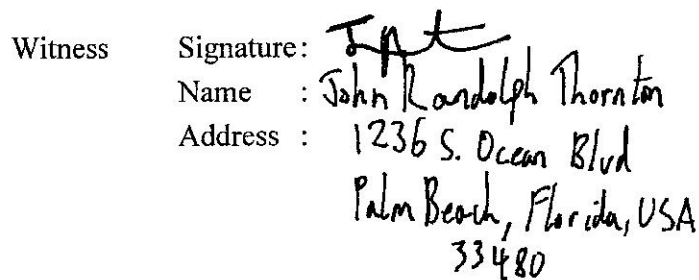 Witness Signature: JRT
Name : John Randolph Thornton
Address : 1236 S. Ocean Blvd
Palm Beach, Florida, USA
33480